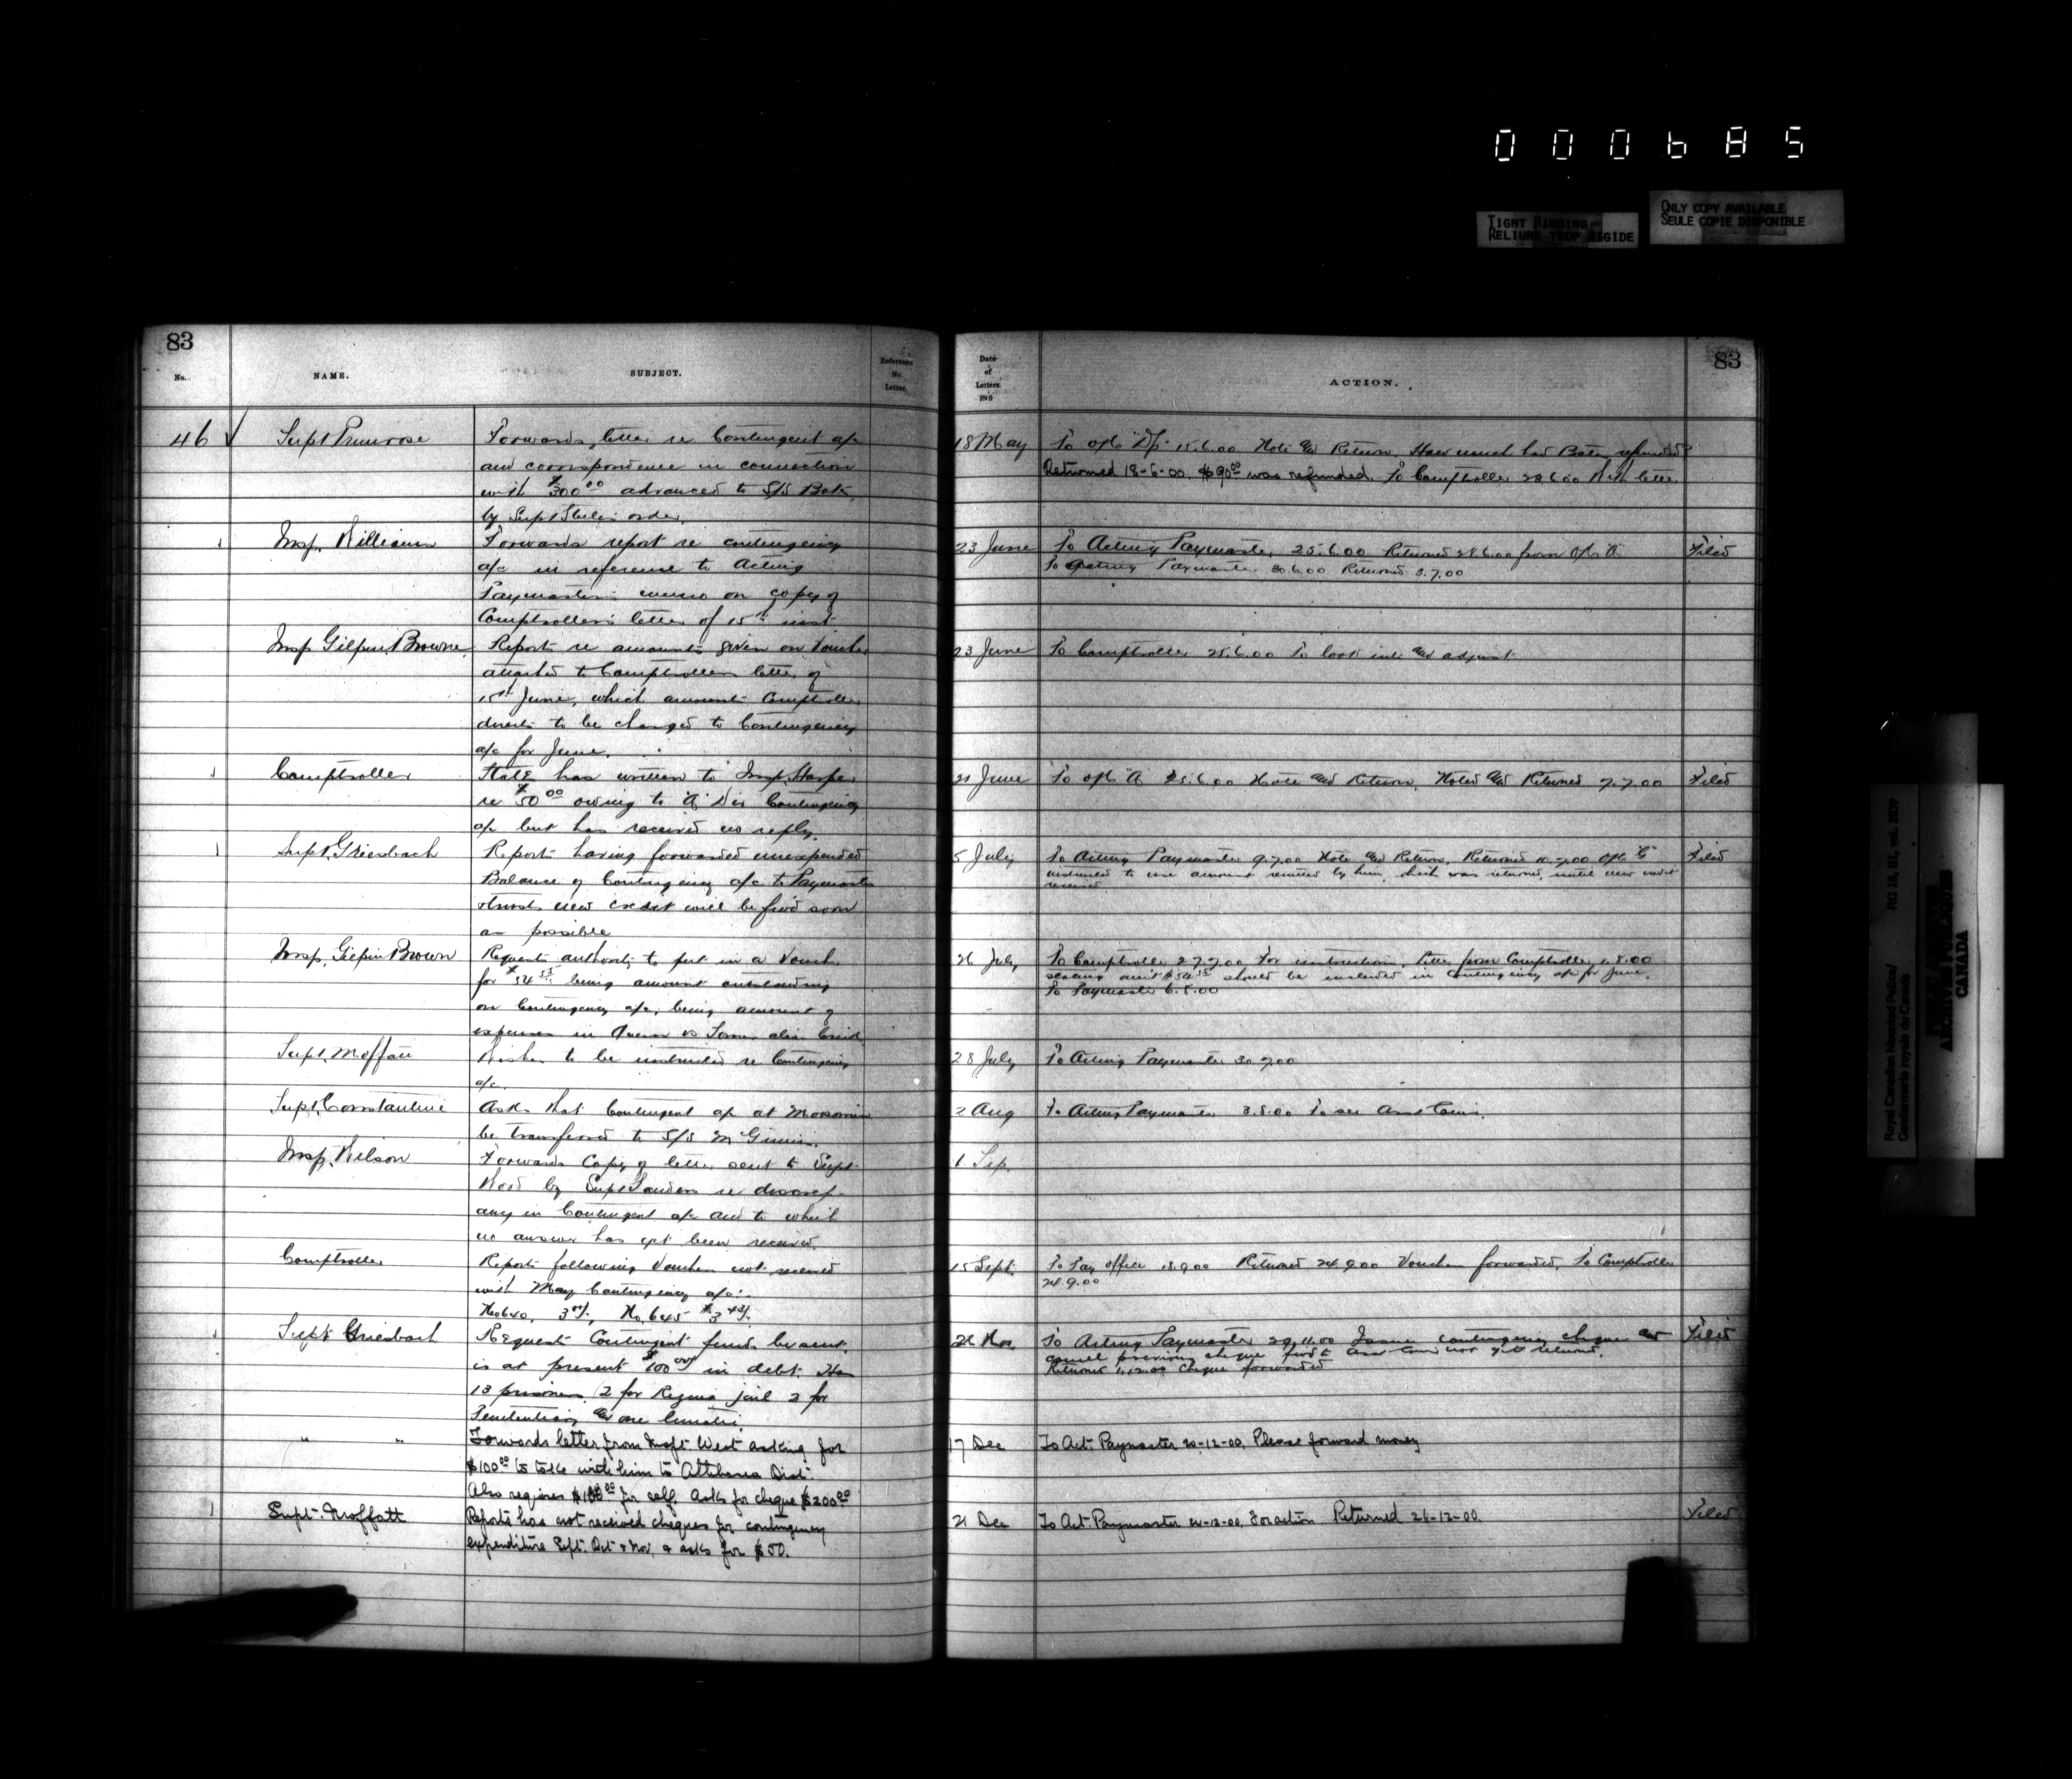 000685
TIGHT BINDING
RELIURE TROP RIGIDE
ONLY COPY AVAILABLE
SEULE COPIE DISPONIBLE
83
No.
NAME.
SUBJECT.
Reference
No
Letter.
46 Supt Primrose
Forwards letter re Contingent a/c
and correspondence in connection
with $300.00 advanced to S/S
by Supt order.
Insp.
Forwards report re contingency
a/c in reference to Acting
Paymaster's memo on copy of
Comptroller's letter of 15th inst
Insp Gilpin Browne
Reports re amounts given on Voucher
attached to Comptrollers letter of
15th June, which amounts Comptroller
directs to be charged to Contingency
a/c for June.
Comptroller
States has written to Insp. Harper
re $50.00 owing to "A" Div Contingency
a/c but has received no reply.
Supt. Griesbach
Reports having forwarded unexpended
Balance of Contingency a/c to Paymaster
trusts new credit will be fwd soon
as possible
Insp. Gilpin Brown
Requests authority to put in a Voucher
for $54 being amount outstanding
on Contingency a/c, being amount of
expenses in Queen vs alias
Supt. Moffatt
Wishes to be instructed re Contingency
a/c.
Supt. Constantine
Asks that Contingent a/c at Moosomin
be transferred to S/S McGinnis.
Insp. Wilson
Forwards Copy of letter sent to Supt
Wood by Supt Sanders re discrep-
ancy in Contingent a/c and to which
no answer has yet been received.
Comptroller
Reports following Vouchers not received
with May Contingency a/c:
No 640, 3 No. 645 $3
Supt. Griesbach
Requests Contingent funds be sent.
is at present $100.00 in debt. Has
13 prisoners, 2 for Regina jail 2 for
Penitentiary and one lunatic.
" "
Forwards letter from Insp. West asking for
$100.00 to take with him to Athabasca Dist.
Also requires $100.00 for self. Asks for cheque $200.00
Supt. Moffatt
Reports has not received cheques for contingency
expenditure Sept. Oct & Nov. & asks for $50.
Date
of
Letters.
1900
ACTION.
83
18 May To o/c "Dp" 15.6.00 Note and Return. How much has been refunded?
Returned 18-6-00. $90.00 was refunded. To Comptroller 23.6.00 With letter
23 June To Acting Paymaster 25.6.00 Returned 28.6.00 from o/c "A" Filed
To Acting Paymaster 30.6.00 Returned 3.7.00
23 June To Comptroller 25.6.00 To look into and adjust
21 June To o/c "A" 25.6.00 Note and Return. Noted and Returned 7.7.00 Filed
5 July To Acting Paymaster 9.7.00 Note and Return. Returned 10.7.00 O/C "G" Filed
instructed to use amount remitted by him, which was returned, until new credit
received
26 July To Comptroller 27.7.00 For instructions. Letter from Comptroller 1.8.00
stating am't $54 should be included in Contingency a/c for June.
To Paymaster 6.8.00
28 July To Acting Paymaster 30.7.00
2 Aug To Acting Paymaster 3.8.00 To see Asst Com.
1 Sep.
15 Sept. To Pay office 18.9.00 Returned 24.9.00 Voucher forwarded. To Comptroller
24.9.00
26 Nov. To Acting Paymaster 29.11.00 Issue contingency cheque and Filed
cancel previous cheque fwd to Asst Com not yet returned.
Returned 1.12.00 Cheque forwarded
17 Dec To Act. Paymaster 20-12-00. Please forward money
21 Dec To Act. Paymaster 24-12-00. For action. Returned 26-12-00 Filed
Royal Canadian Mounted Police/
Gendarmerie royale du Canada
RG 18, B1, vol. 2039
CANADA